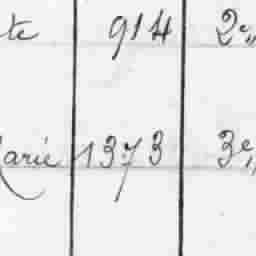 te 914 2e
Marie 1373 3e